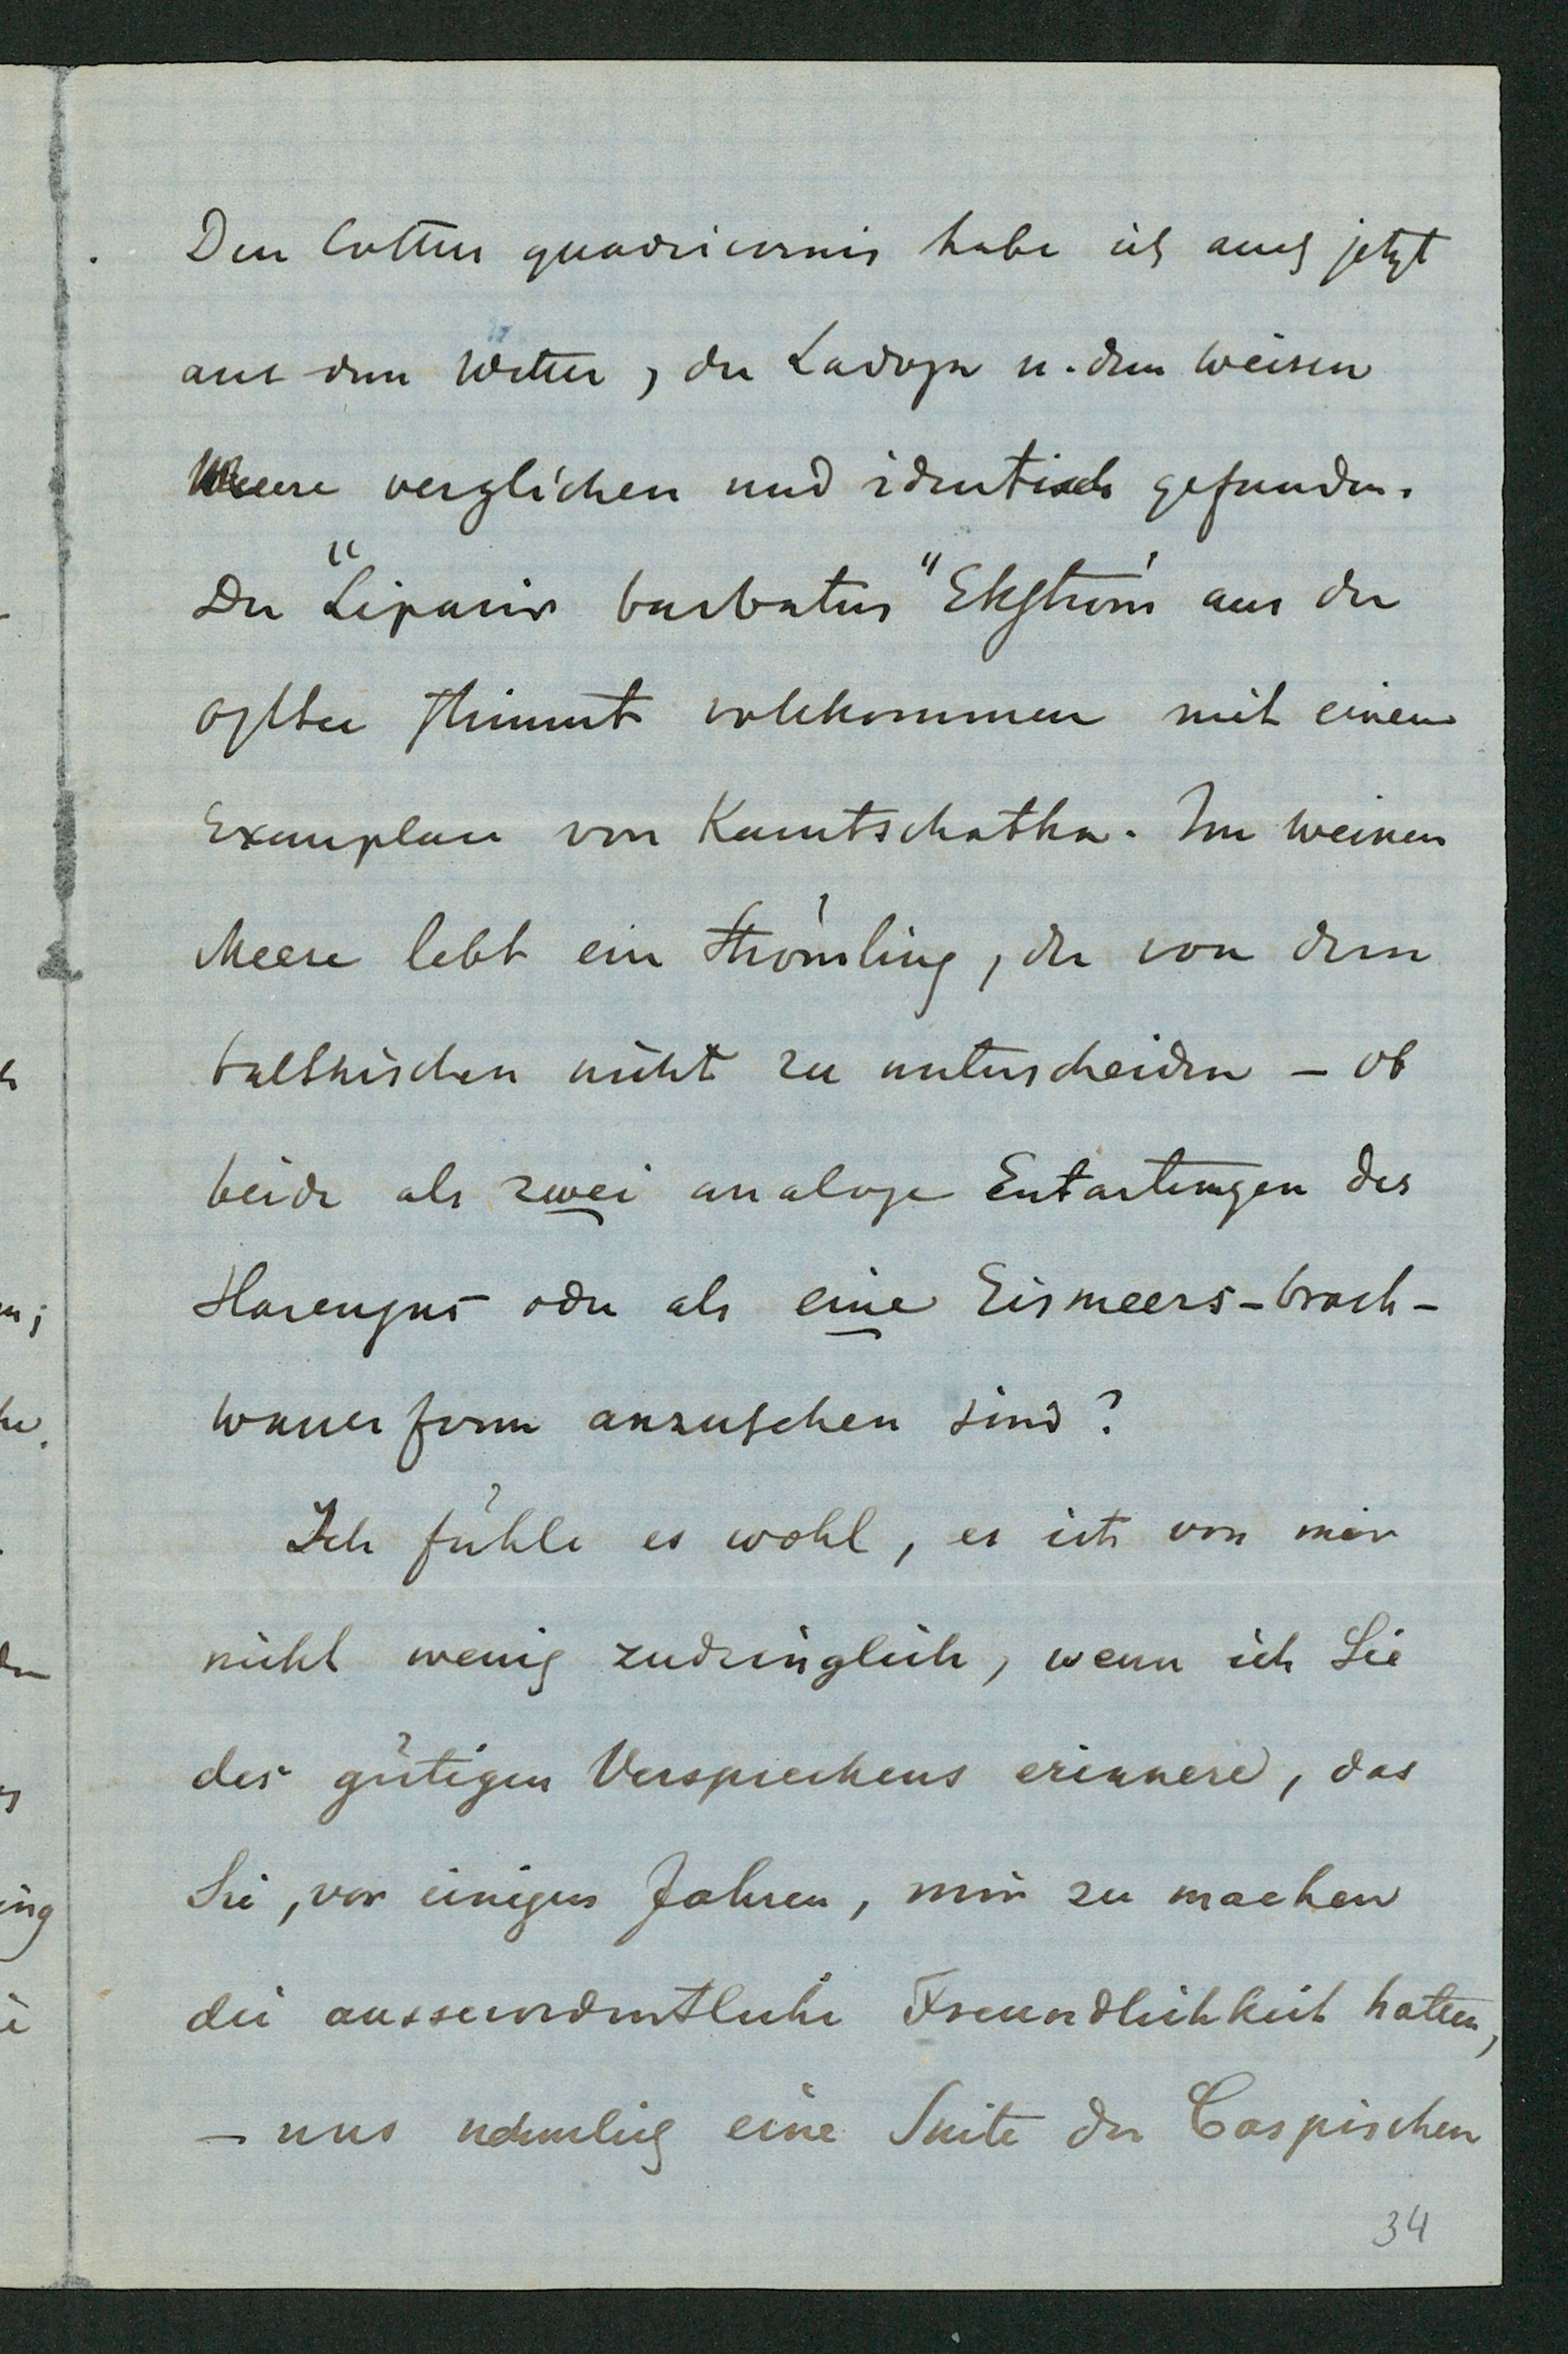 Den Cottus quadricornis habe ich auch jetzt
aus dem Wetter, der Ladoga u. dem Weissen
Meere verglichen und identisch gefunden.
Der "Liparis barbatus" Ekström's aus der
Ostsee stimmt vollkommen mit einem
Exemplare von Kamtschatka. Im Weissen
Meere lebt ein Strömling, der von dem
balthischen nicht zu unterscheiden – ob
beide als zwei analoge Entartungen des
Harengus oder als eine Eismeers-brack-
wasserform anzusehen sind?
Ich fühle es wohl, es ist von mir
nicht wenig zudringlich, wenn ich Sie
des gütigen Versprechens erinnere, das
Sie, vor einigen Jahren, mir zu machen
die ausserordentliche Freundlichkeit hatten,
– uns nehmlich eine Suite der Caspischen
34